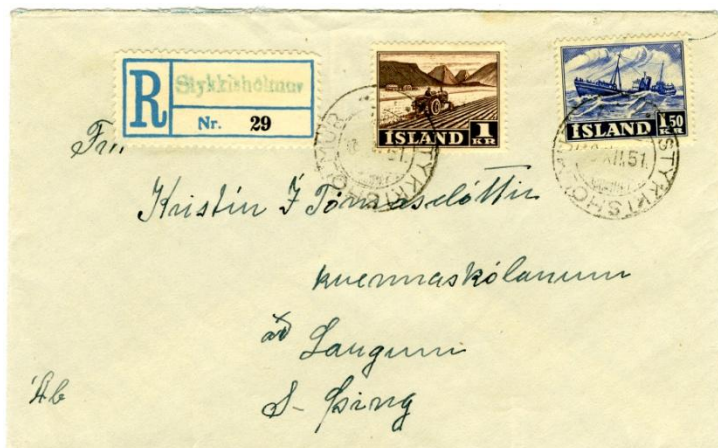 R Stykkishólmur
Nr. 29
ÍSLAND 1 KR
ÍSLAND 1.50 KR
STYKKISHÓLMUR
STYKKISHÓLMUR XII.51
Frk
Kristín J Tómasdóttir
kvennaskólanum
að Laugum
S-Þing
Áb